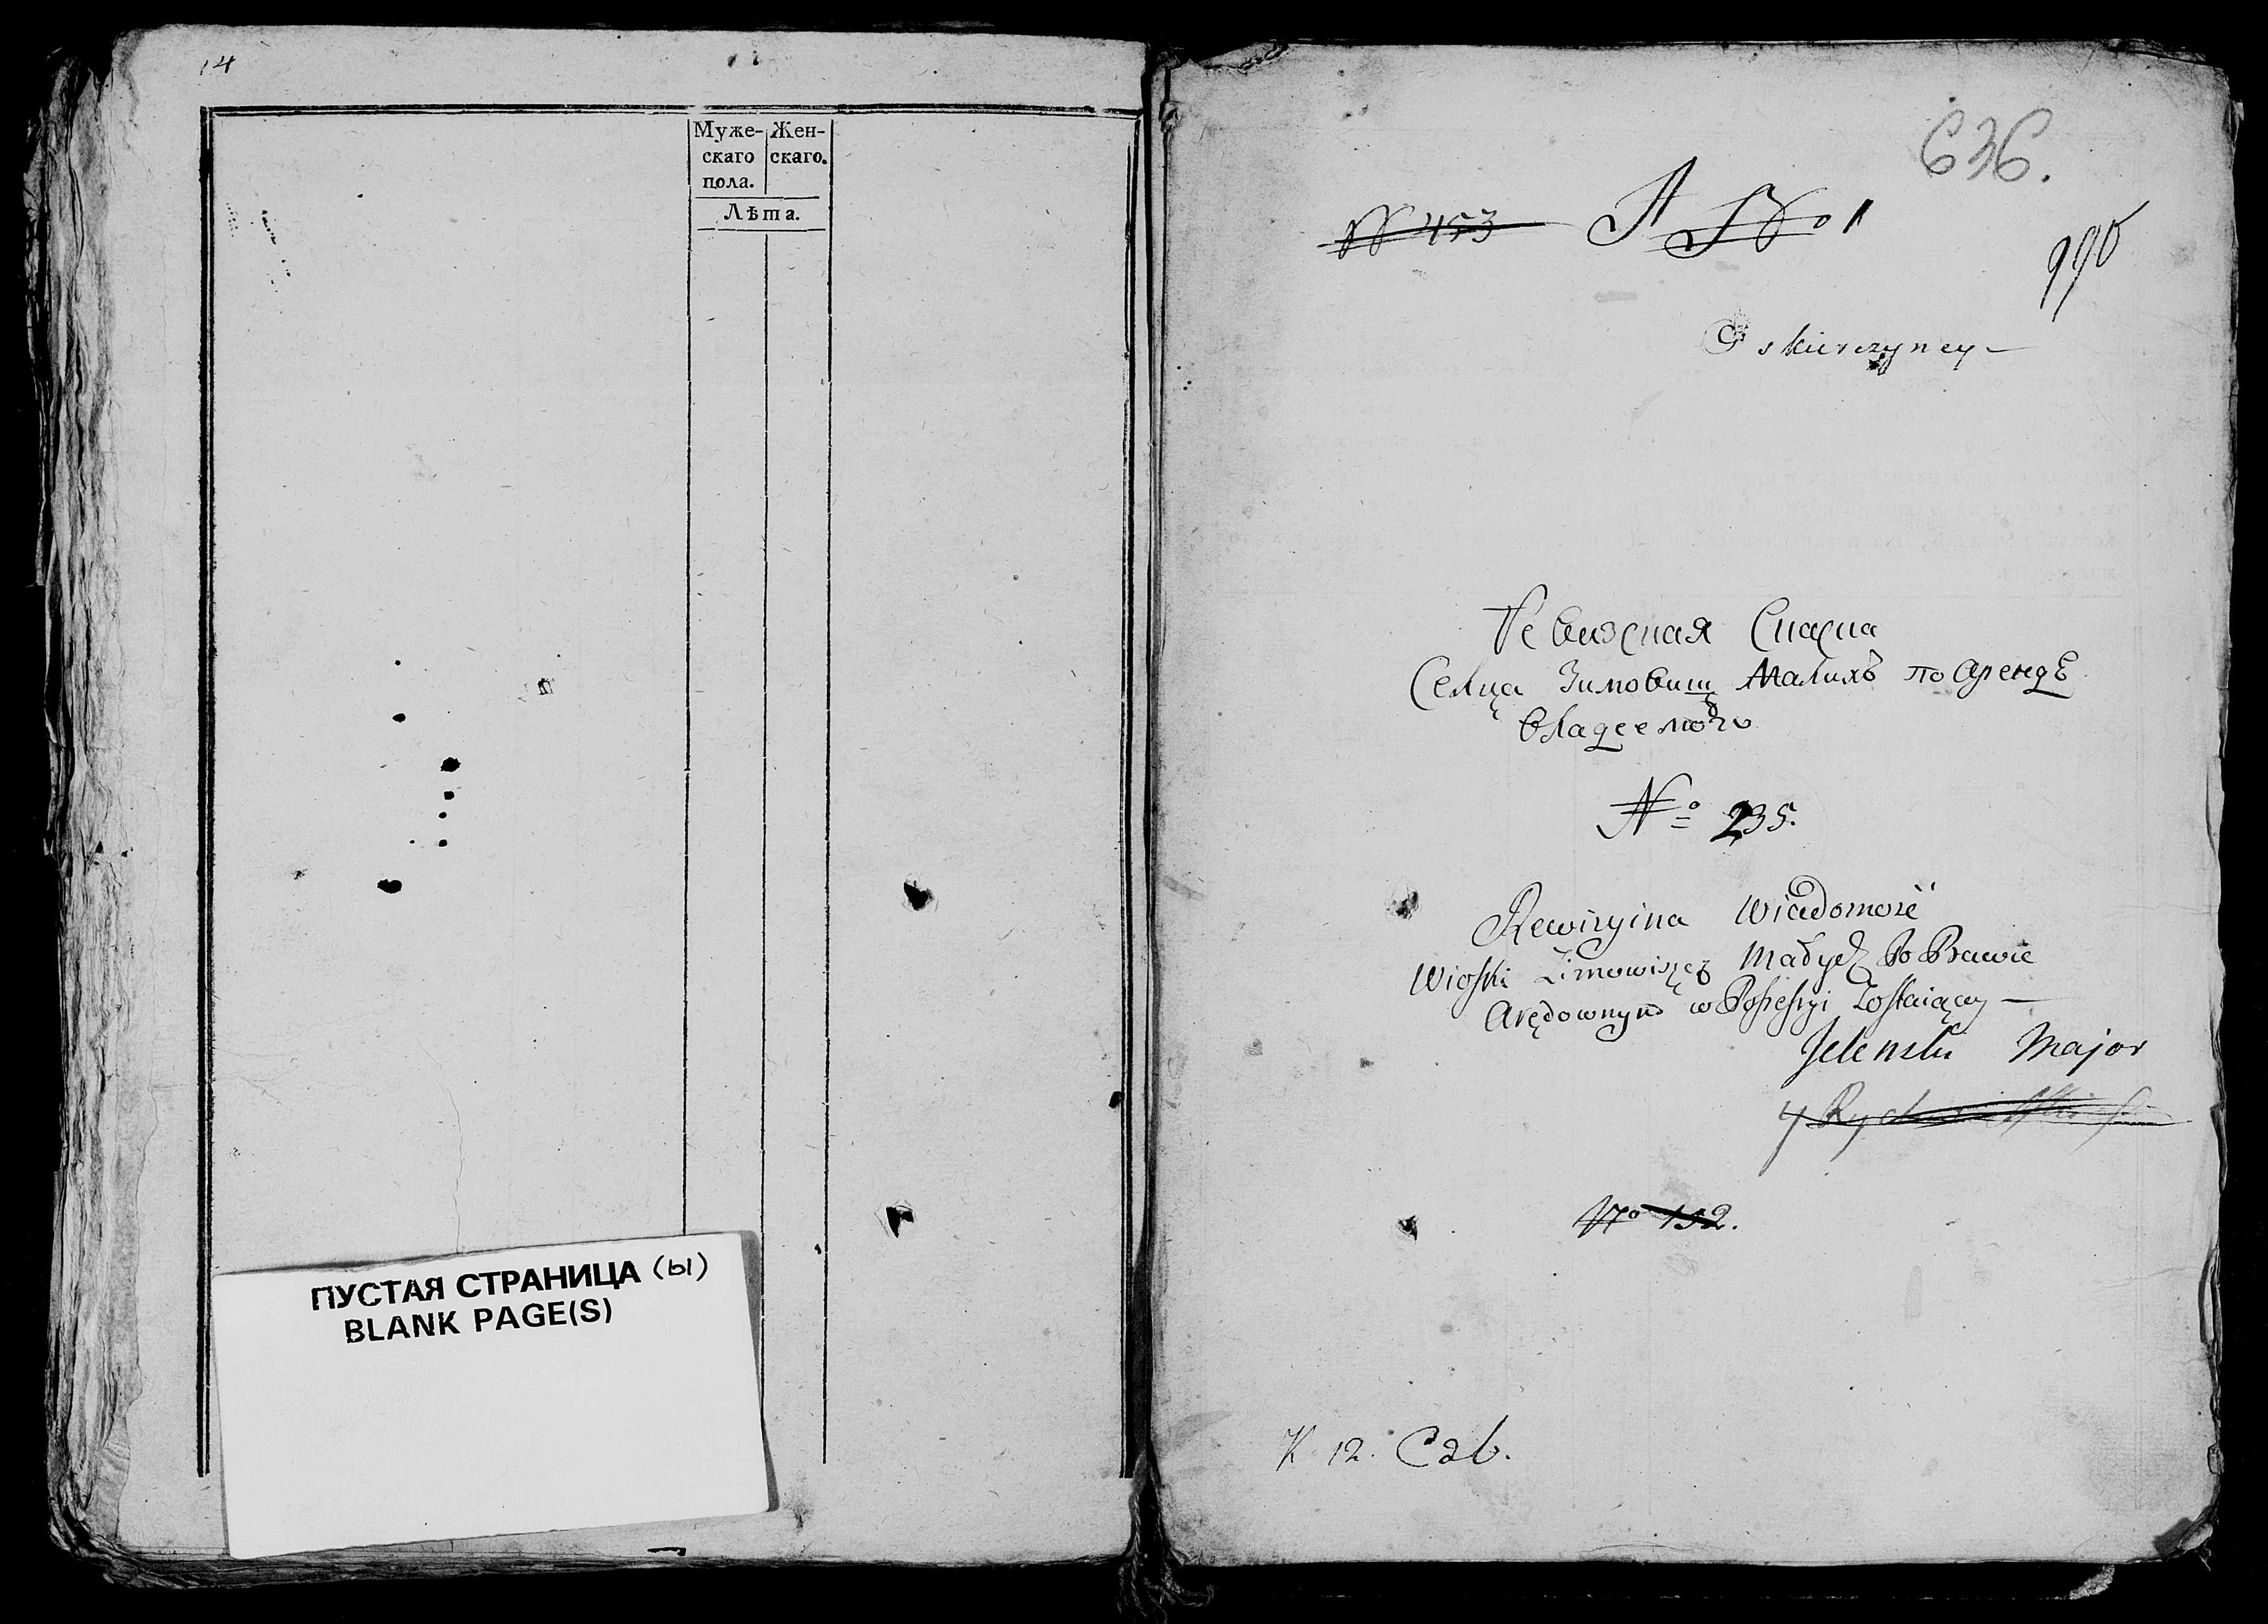 14
Муже-
скаго
пола.
Жен-
скаго.
Лѣта.
ПУСТАЯ СТРАНИЦА (ы)
BLANK PAGE(S)
636.
№ 453 A № 1
990
Oskierczyney
Ревизская Сказка
Селца Зимовищ Малихъ по арендѣ
владеемого
№ 235.
Rewizyina Wiadomość
Wioski Zimowiszcz Małych Po Prawie
Arędownym w Possessyi Zostaiącey
Jelenski Major
№ 152.
K 12. Cab.